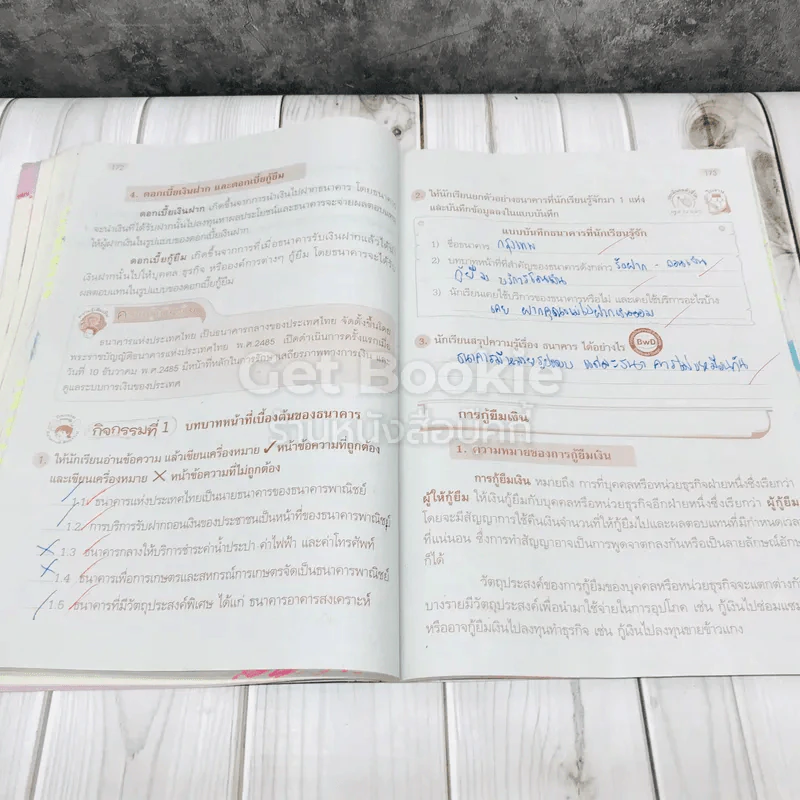 172
4. ดอกเบี้ยเงินฝาก และดอกเบี้ยกู้ยืม
ดอกเบี้ยเงินฝาก เกิดขึ้นจากการนำเงินไปฝากธนาคาร โดยธนาคาร
จะนำเงินที่ได้รับฝากนั้นไปลงทุนหาผลประโยชน์และธนาคารจะจ่ายผลตอบแทน
ให้ผู้ฝากเงินในรูปแบบของดอกเบี้ยเงินฝาก
ดอกเบี้ยกู้ยืม เกิดขึ้นจากการที่เมื่อธนาคารรับเงินฝากแล้วได้
เงินฝากนั้นไปให้บุคคล ธุรกิจ หรือองค์การต่างๆ กู้ยืม โดยธนาคารจะได้
ผลตอบแทนในรูปแบบของดอกเบี้ยกู้ยืม
ธนาคารแห่งประเทศไทย เป็นธนาคารกลางของประเทศไทย จัดตั้งขึ้นโดย
พระราชบัญญัติธนาคารแห่งประเทศไทย พ.ศ.2485 เปิดดำเนินการครั้งแรกเมื่อ
วันที่ 10 ธันวาคม พ.ศ.2485 มีหน้าที่หลักในการรักษาเสถียรภาพทางการเงิน และ
ดูแลระบบการเงินของประเทศ
กิจกรรมที่ 1 บทบาทหน้าที่เบื้องต้นของธนาคาร
1. ให้นักเรียนอ่านข้อความ แล้วเขียนเครื่องหมาย ✓ หน้าข้อความที่ถูกต้อง
และเขียนเครื่องหมาย ✗ หน้าข้อความที่ไม่ถูกต้อง
1.1 ธนาคารแห่งประเทศไทยเป็นนายธนาคารของธนาคารพาณิชย์
1.2 การบริการรับฝากถอนเงินของประชาชนเป็นหน้าที่ของธนาคารพาณิชย์
1.3 ธนาคารกลางให้บริการชำระค่าน้ำประปา ค่าไฟฟ้า และค่าโทรศัพท์
1.4 ธนาคารเพื่อการเกษตรและสหกรณ์การเกษตรจัดเป็นธนาคารพาณิชย์
1.5 ธนาคารที่มีวัตถุประสงค์พิเศษ ได้แก่ ธนาคารอาคารสงเคราะห์
173
2. ให้นักเรียนยกตัวอย่างธนาคารที่นักเรียนรู้จักมา 1 แห่ง
และบันทึกข้อมูลลงในแบบบันทึก
แบบบันทึกธนาคารที่นักเรียนรู้จัก
1) ชื่อธนาคาร กรุงเทพ
2) บทบาทหน้าที่ที่สำคัญของธนาคารดังกล่าว รับฝาก - ถอนเงิน
กู้ยืม บริการโอนเงิน
3) นักเรียนเคยใช้บริการของธนาคารหรือไม่ และเคยใช้บริการอะไรบ้าง
เคย
3. นักเรียนสรุปความรู้เรื่อง ธนาคาร ได้อย่างไร BwD
ธนาคารมีหลายรูปแบบ
การกู้ยืมเงิน
1. ความหมายของการกู้ยืมเงิน
การกู้ยืมเงิน หมายถึง การที่บุคคลหรือหน่วยธุรกิจฝ่ายหนึ่งซึ่งเรียกว่า
ผู้ให้กู้ยืม ให้เงินกู้ยืมกับบุคคลหรือหน่วยธุรกิจอีกฝ่ายหนึ่งซึ่งเรียกว่า ผู้กู้ยืม
โดยจะมีสัญญาการใช้คืนเงินจำนวนที่ให้กู้ยืมไปและผลตอบแทนที่มีกำหนดเวลา
ที่แน่นอน ซึ่งการทำสัญญาอาจเป็นการพูดจาตกลงกันหรือเป็นลายลักษณ์อักษร
ก็ได้
วัตถุประสงค์ของการกู้ยืมของบุคคลหรือหน่วยธุรกิจจะแตกต่างกัน
บางรายมีวัตถุประสงค์เพื่อนำมาใช้จ่ายในการอุปโภค เช่น กู้เงินไปซ่อมแซม
หรืออาจกู้ยืมเงินไปลงทุนทำธุรกิจ เช่น กู้เงินไปลงทุนขายข้าวแกง
Get Bookie
ร้านหนังสือบุคกี้